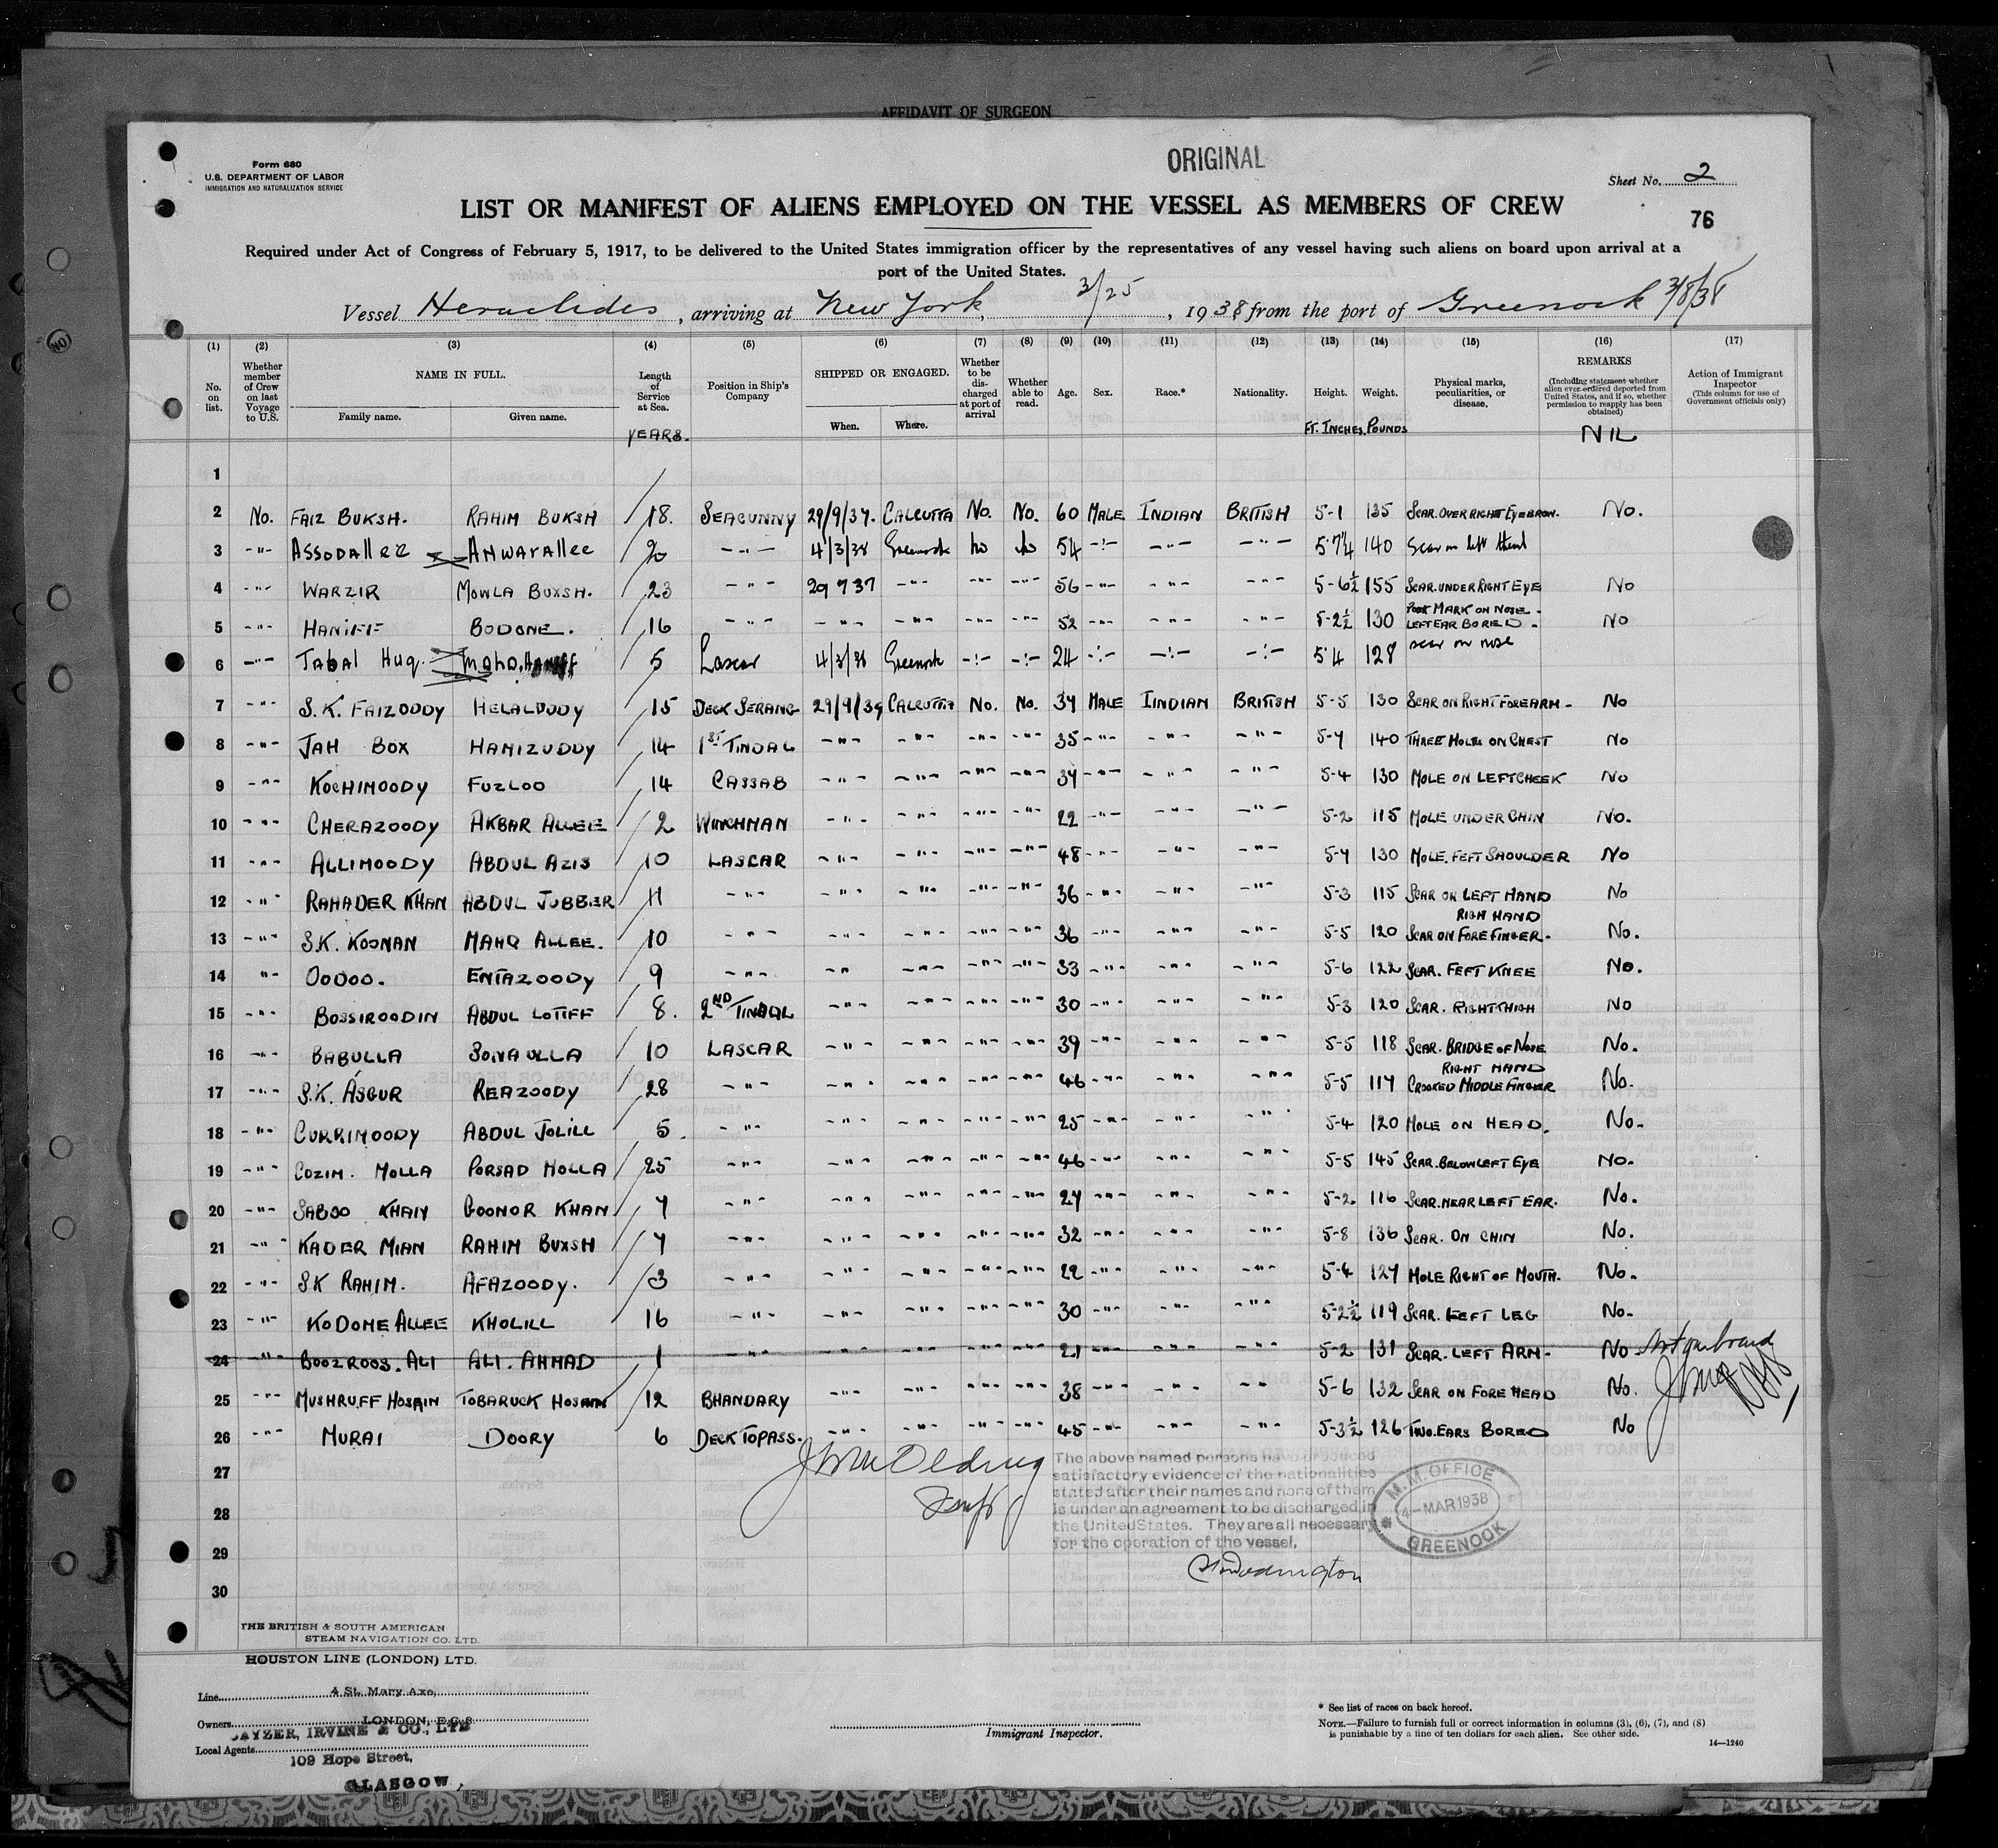 AFFIDAVIT OF SURGEON
ORIGINAL
Form 680
U.S. DEPARTMENT OF LABOR
IMMIGRATION AND NATURALIZATION SERVICE
Sheet No. 2
LIST OR MANIFEST OF ALIENS EMPLOYED ON THE VESSEL AS MEMBERS OF CREW
76
Required under Act of Congress of February 5, 1917, to be delivered to the United States immigration officer by the representatives of any vessel having such aliens on board upon arrival at a
port of the United States.
Vessel Heraclides, arriving at New York, 3/25, 1938 from the port of Greenock 3/8/38
(1) (2) (3) (4) (5) (6) (7) (8) (9) (10) (11) (12) (13) (14) (15) (16) (17)
No. on list. Whether member of Crew on last Voyage to U.S. NAME IN FULL. Family name. Given name. Length of Service at Sea. Position in Ship's Company SHIPPED OR ENGAGED. When. Where. Whether to be discharged at port of arrival Whether able to read. Age. Sex. Race.* Nationality. Height. Weight. Physical marks, peculiarities, or disease. REMARKS (Including statement whether alien ever ordered deported from United States, and if so, whether permission to reapply has been obtained) Action of Immigrant Inspector (This column for use of Government officials only)
YEARS. FT. INCHES. POUNDS NIL
1
2 No. FAIZ BUKSH. RAHIM BUKSH 18. SEACUNNY 29/9/37. CALCUTTA No. No. 60 MALE INDIAN BRITISH 5-1 135 SCAR. OVER RIGHT EYEBROW. No.
3 -"- Assodallee Anwarallee 20 -"- 4/3/38 Greenock No No 54 -"- -"- -"- 5'7¼ 140 Scar on left thumb
4 -"- WARZIR MOWLA BUXSH. 23 -"- 29 9 37 -"- -"- -"- 56 -"- -"- -"- 5-6½ 155 SCAR. UNDER RIGHT EYE No
5 -"- HANIFF BODONE. 16 -"- -"- -"- -"- -"- 52 -"- -"- -"- 5-2½ 130 POCK MARK ON NOSE. LEFT EAR BORED. No
6 -"- Jabal Huq. Mohd. Haniff 5 Lascar 4/3/38 Greenock -"- -"- 24 -"- -"- -"- 5'4 128 scar on nose
7 -"- S.K. FAIZOODY HELALOODY 15 DECK SERANG 29/9/37 CALCUTTA No. No. 34 MALE IINDIAN BRITISH 5-5 130 SCAR ON RIGHT FOREARM- No
8 -"- JAH BOX HAMIZUDDY 14 1ST TINDAL -"- -"- -"- -"- 35 -"- -"- -"- 5-4 140 THREE MOLES ON CHEST No
9 -"- KOCHIMOODY FUZLOO 14 CASSAB -"- -"- -"- -"- 34 -"- -"- -"- 5-4 130 MOLE ON LEFT CHEEK No
10 -"- CHERAZOODY AKBAR ALLEE 2 WINCHMAN -"- -"- -"- -"- 22 -"- -"- -"- 5-2 115 MOLE UNDER CHIN No.
11 -"- ALLIMOODY ABDUL AZIS 10 LASCAR -"- -"- -"- -"- 48 -"- -"- -"- 5-4 130 MOLE. FEFT SHOULDER No
12 -"- RAHADER KHAN ABDUL JUBBER 11 -"- -"- -"- -"- -"- 36 -"- -"- -"- 5-3 115 SCAR ON LEFT HAND No
13 -"- S.K. KOONAN MAHO ALLEE. 10 -"- -"- -"- -"- -"- 36 -"- -"- -"- 5-5 120 RIGH HAND SCAR ON FORE FINGER- No.
14 " OODOO. ENTAZOODY 9 -"- -"- -"- -"- -"- 33 -"- -"- -"- 5-6 122 SCAR. FEFT KNEE No.
15 -"- BOSSIROODIN ABDUL LOTIFF 8. 2ND TINDAL -"- -"- -"- -"- 30 -"- -"- -"- 5-3 120 SCAR. RIGHT THIGH No
16 -"- BABULLA SONAULLA 10 LASCAR -"- -"- -"- -"- 39 -"- -"- -"- 5-5 118 SCAR. BRIDGE OF NOSE No.
17 -"- S.K. ASGUR REAZOODY 28 -"- -"- -"- -"- -"- 46 -"- -"- -"- 5-5 114 RIGHT HAND CROOKED MIDDLE FINGER No.
18 -"- CURRIMOODY ABDUL JOLILL 5. -"- -"- -"- -"- -"- 25 -"- -"- -"- 5-4 120 MOLE ON HEAD. No.
19 -"- COZIM. MOLLA PORSAD MOLLA 25 -"- -"- -"- -"- -"- 46 -"- -"- -"- 5-5 145 SCAR. BELOW LEFT EYE No.
20 -"- SABOO KHAN GOONOR KHAN 4 -"- -"- -"- -"- -"- 24 -"- -"- -"- 5-2. 116 SCAR. NEAR LEFT EAR. No.
21 -"- KADER MIAN RAHIM BUXSH 4 -"- -"- -"- -"- -"- 32 -"- -"- -"- 5-8 136 SCAR. ON CHIN No.
22 -"- SK RAHIM. AFAZOODY. 3 -"- -"- -"- -"- -"- 22 -"- -"- -"- 5-4 124 MOLE RIGHT OF MOUTH. No.
23 -"- KODOME ALLEE KHOLILL 16 -"- -"- -"- -"- -"- 30 -"- -"- -"- 5-2½ 119 SCAR. LEFT LEG No-
24 -"- BOOZROOS. ALI ALI. AHMAD 1 -"- -"- -"- -"- -"- 21 -"- -"- -"- 5-2 131 SCAR. LEFT ARM- No Not on board
25 -"- MUSHRUFF HOSAIN TOBARUCK HOSAIN 12 BHANDARY -"- -"- -"- -"- 38 -"- -"- -"- 5-6 132 SCAR ON FORE HEAD No.
26 -"- MURAI DOORY 6 DECK TOPASS. -"- -"- -"- -"- 45 -"- -"- -"- 5-3½ 126 TWO. EARS BORED No
27
28
29
30
The above named persons have produced
satisfactory evidence of the nationalities
stated after their names and none of them
is under an agreement to be discharged in
the United States. They are all necessary
for the operation of the vessel.
M. M. OFFICE
4-MAR 1938
GREENOCK
THE BRITISH & SOUTH AMERICAN
STEAM NAVIGATION CO. LTD.
HOUSTON LINE (LONDON) LTD.
Line 4 St. Mary Axe,
Owners LONDON, E.C.3
CAYZER, IRVINE & CO., LTD
Local Agents
109 Hope Street,
GLASGOW,
Immigrant Inspector.
* See list of races on back hereof.
NOTE.—Failure to furnish full or correct information in columns (3), (6), (7), and (8)
is punishable by a fine of ten dollars for each alien. See other side.
14—1240